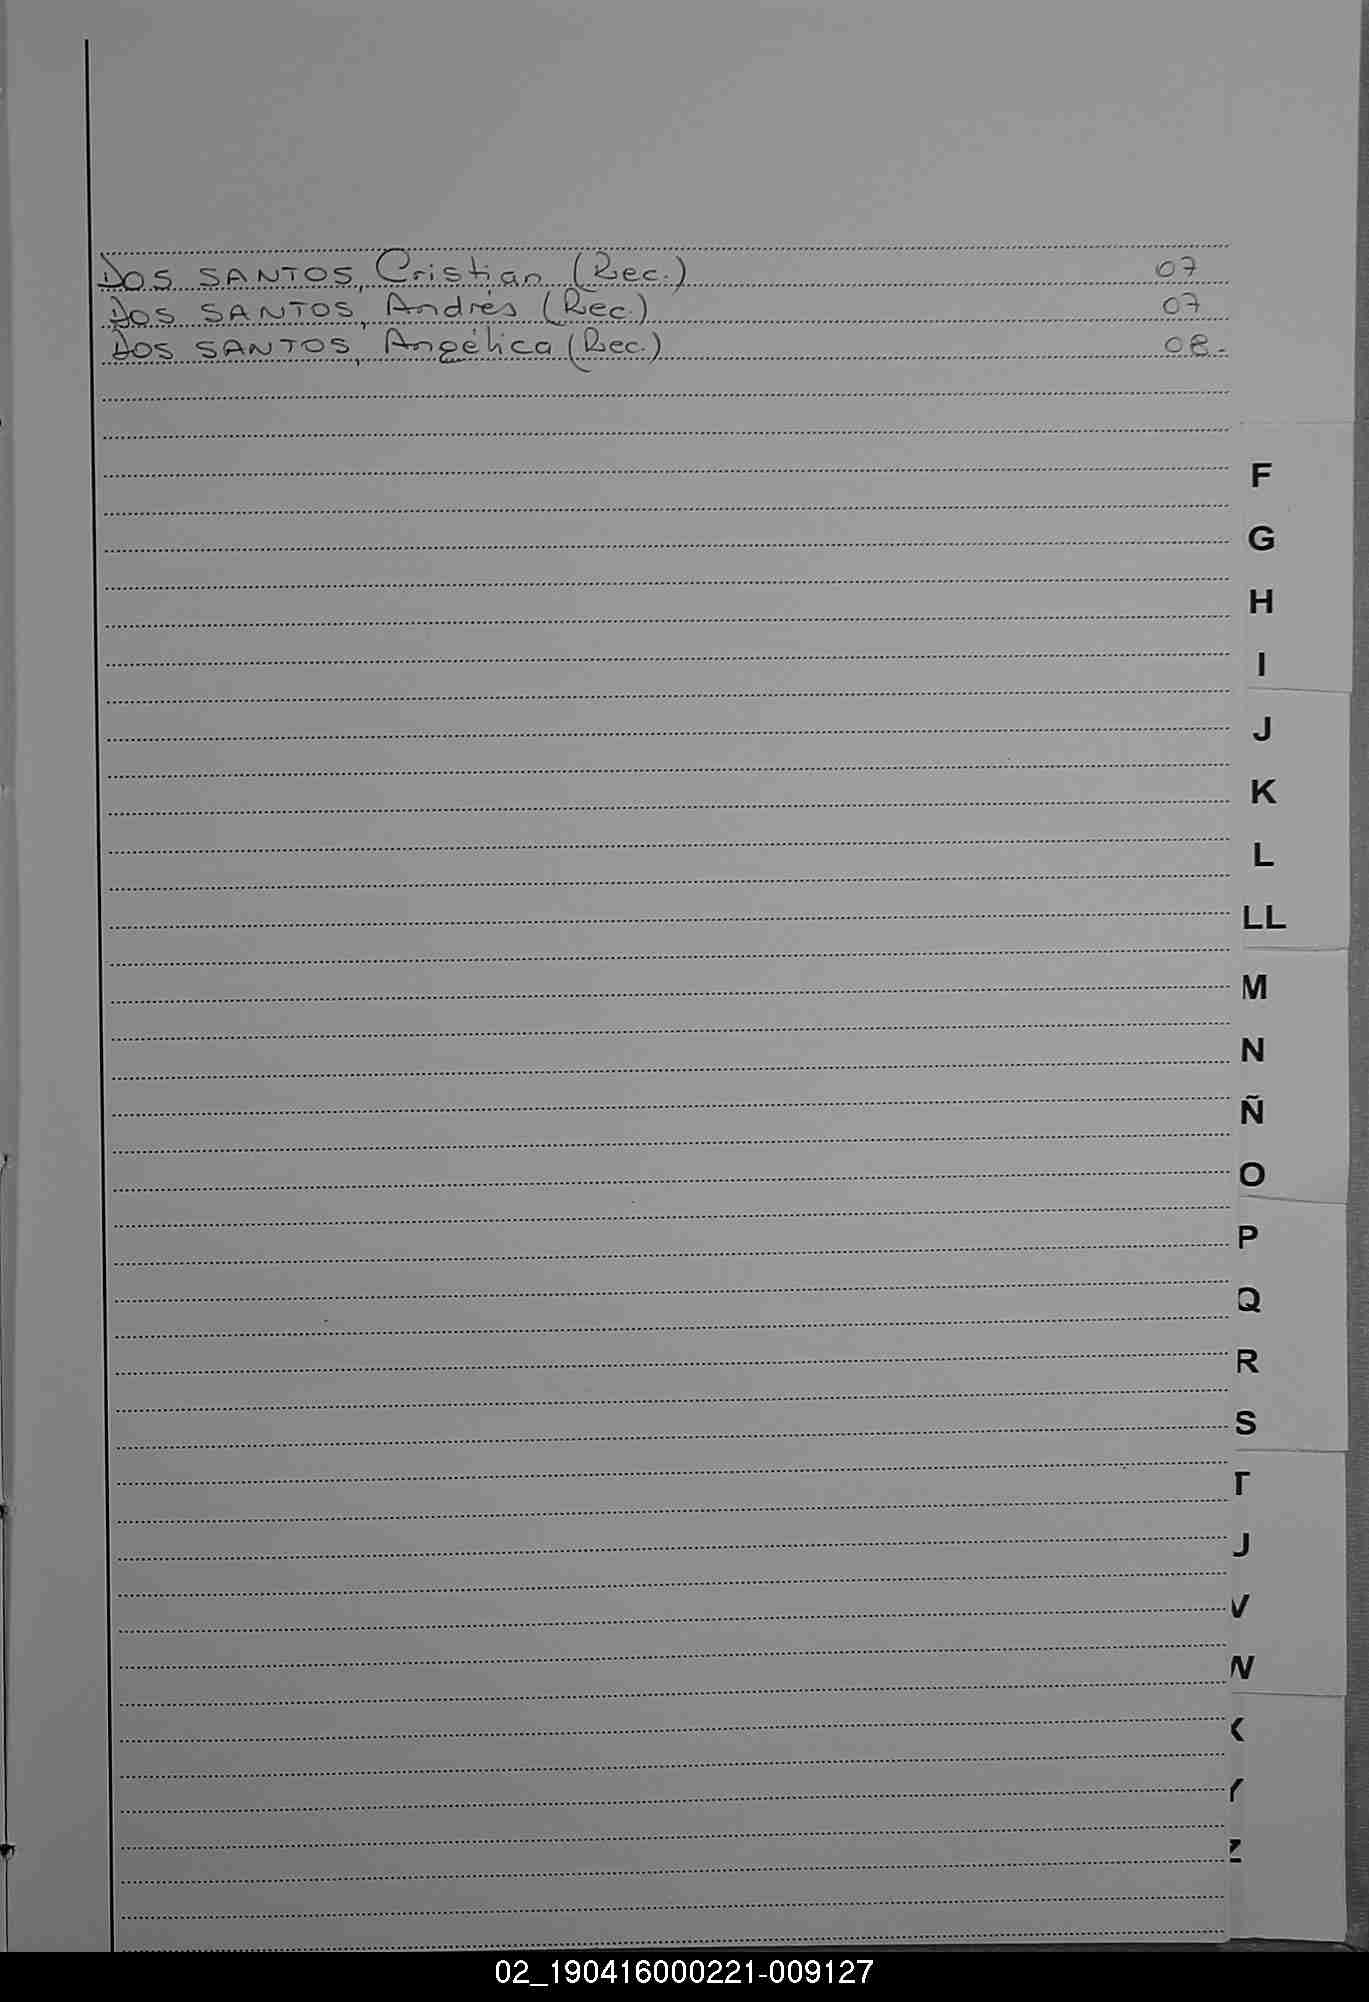 DOS SANTOS, Cristian (Rec.) 07
DOS SANTOS, Andrés (Rec.) 07
DOS SANTOS, Angélica (Rec.) 08.-
F
G
H
I
J
K
L
LL
M
N
Ñ
O
P
Q
R
S
T
J
V
W
X
Y
Z
02_190416000221-009127